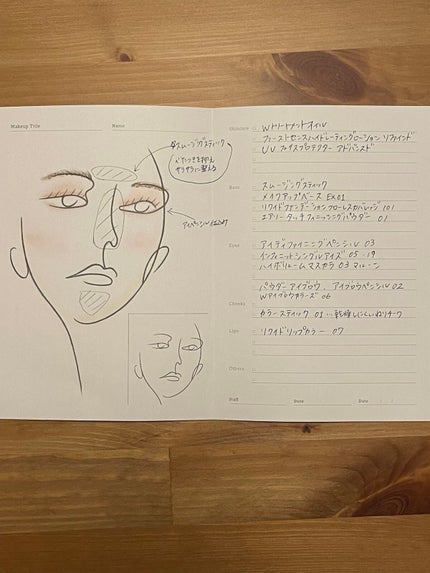 Makeup Title
Name
☆スムージングスティック
べたつきを抑え
サラサラに整える
アイペンシル
Skincare
Wトリートメントオイル
ファーストセンスハイドレーティングローション リファインド
UV フェイスプロテクター アドバンスド
Base
スムージングスティック
メイクアップベース EX01
リクイドファンデーションフローレスカバレッジ 101
エアリータッチフィニッシングパウダー 01
Eyes
アイディファイニングペンシル 03
インフィニットシングルアイズ 05・19
ハイボリュームマスカラ 03 マルーン
パウダーアイブロウ、アイブロウペンシル 02
Wアイブロウカラーズ 06
Cheeks
カラースティック 01…乾燥しにくいねりチーク
Lips
リクイドリップカラー 07
Others
Staff
Date